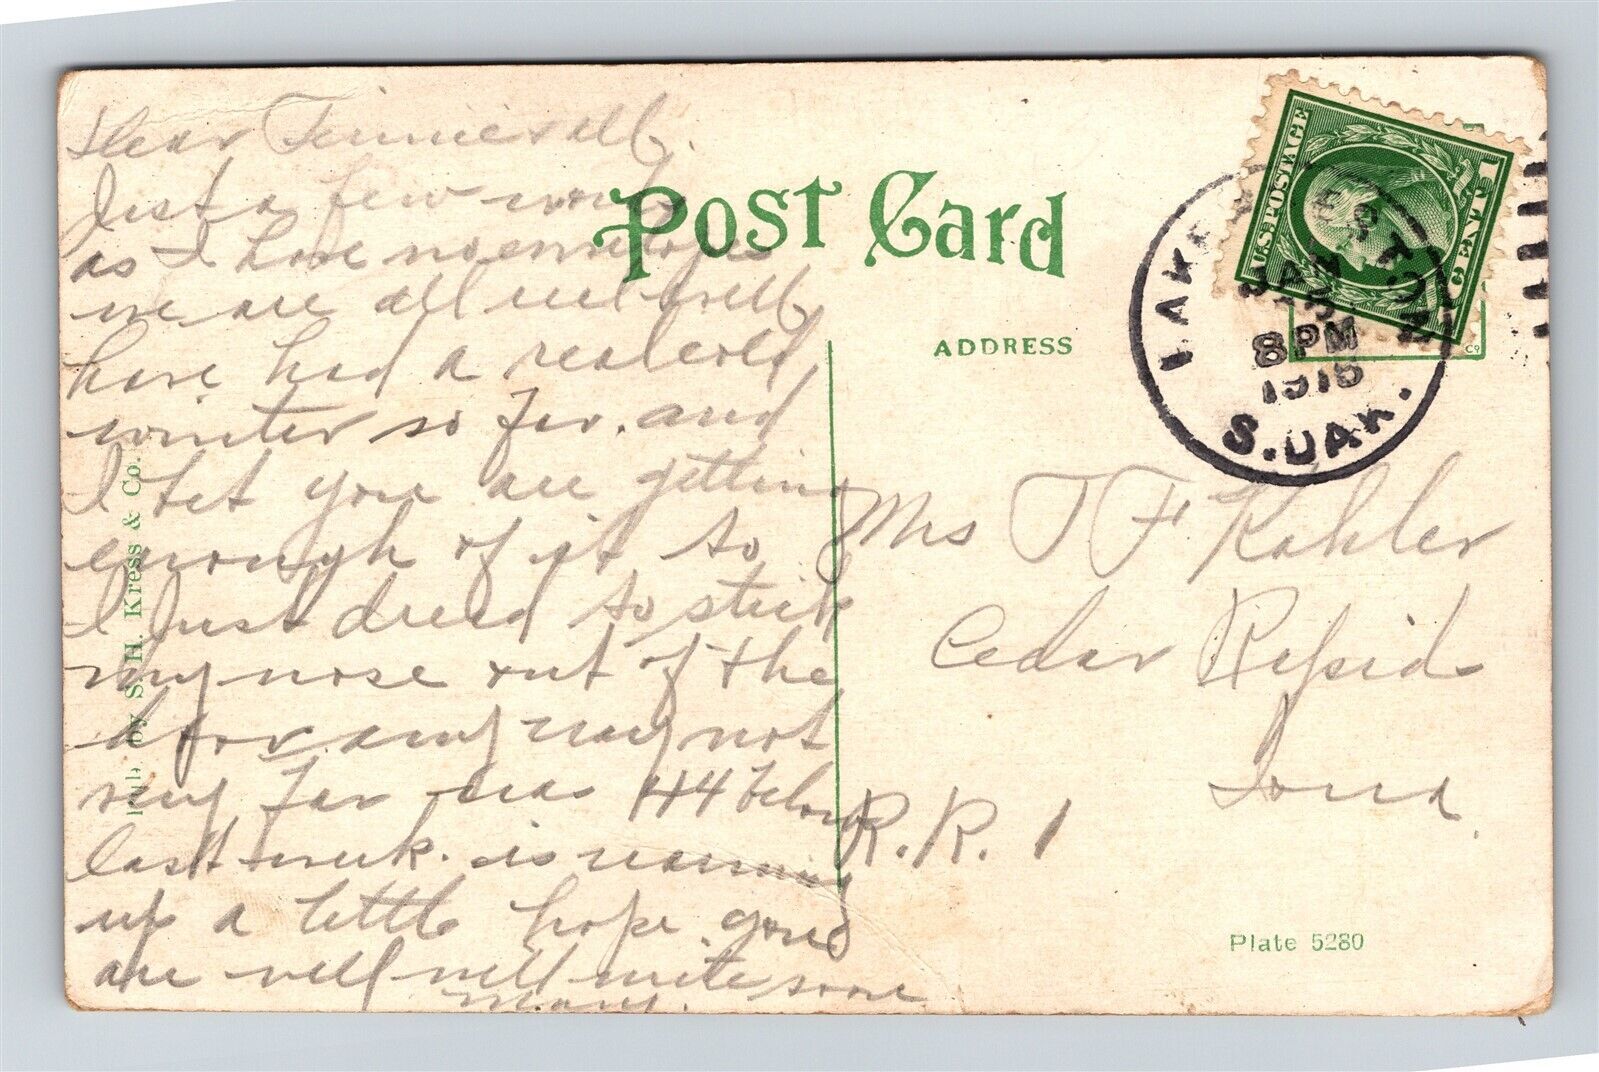 Dear Tennie & all.
Just a few words
as I have no envelope
we are all well
have had a real cold
winter so far. and
I bet you are getting
enough of it to
I Just dread to stick
my nose out of the
door any way not
very far was 44 below
last week. is warming
up a little hope you
are well will write soon
Mary.
Pub. by S. H. Kress & Co.
Post Card
ADDRESS
U.S. POSTAGE
1 CENT 1
JAN
8 PM
S. DAK.
Mrs T F Kahler
Cedar Rapids
Iowa.
R. R. 1
Plate 5280